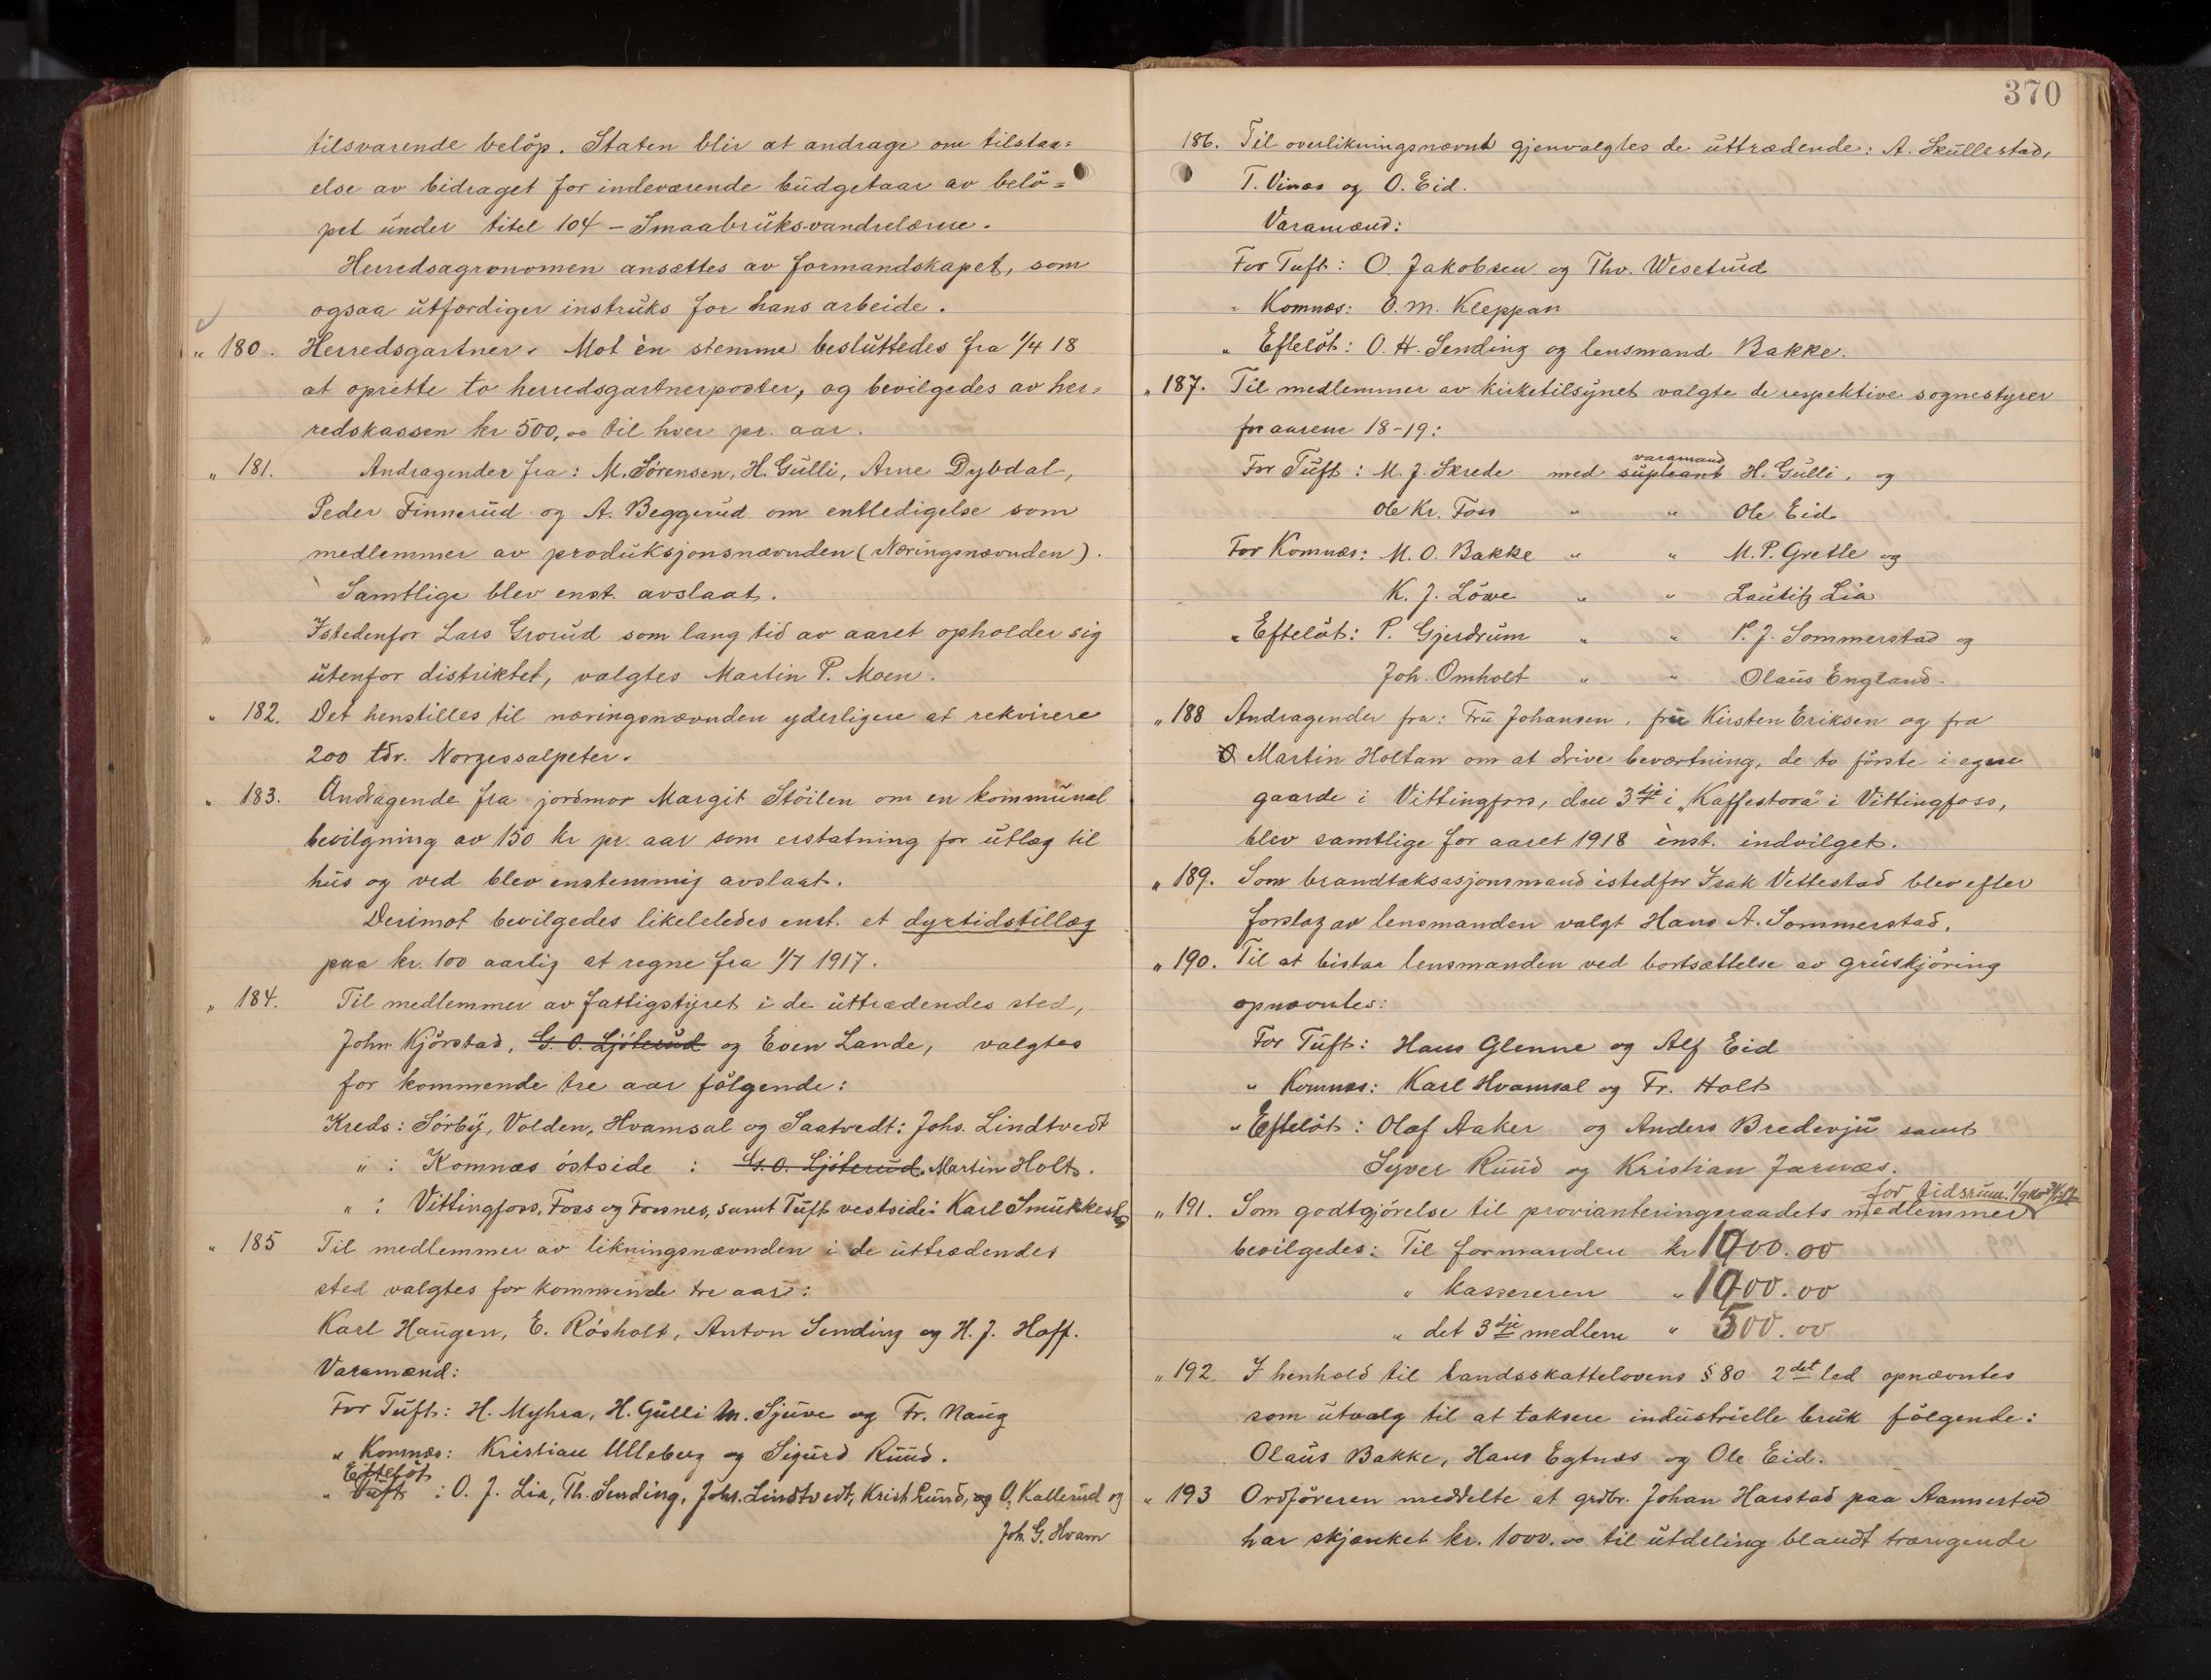 tilsvarende beløp. Staten blir at andrage om tilstaa=
else av bidraget for indeværende budgetaar av belø=
pet under titel 104 – Smaabruksvandrelærere.
Herredsagronomen ansættes av formandskapet, som
ogsaa utfærdiger instruks for hans arbeide.
„ 180. Herredsgartner. Mot èn stemme besluttedes fra 1/4 18
at oprette to herredsgartnerposter, og bevilgedes av her=
redskassen kr 500,00 til hver pr. aar.
„ 181. Andragender fra: M. Sørensen, H. Gulli, Arne Dybdal,
Peder Finnerud og A. Beggerud om entledigelse som
medlemmer av produksjonsnævnden (Næringsnævnden).
Samtlige blev enst. avslaat.
„ Istedenfor Lars Grorud som lang tid av aaret opholder sig
utenfor distriktet, valgtes Martin P. Moen.
„ 182. Det henstilles til næringsnævnden yderligere at rekvirere
200 tdr. Norgessalpeter.
„ 183. Andragende fra jordmor Margit Støilen om en kommunal
bevilgning av 150 kr pr. aar som erstatning for utlæg til
hus og ved blev enstemmig avslaat.
Derimot bevilgedes likeledes enst. et dyrtidstillæg
paa kr. 100 aarlig at regne fra 1/7 1917.
„ 184. Til medlemmer av fattigstyret i de uttrædendes sted,
John Kjørstad, G. O. Ljøterud og Even Lande, valgtes
for kommende tre aar følgende:
Kreds: Sørby, Volden, Hvamsal og Saatvedt: Johs. Lindtvedt
„ : Komnæs østside : G. O. Ljøterud. Martin Holt.
„ : Vittingfoss, Foss og Fossnes, samt Tuft vestside: Karl Smukkest
„ 185 Til medlemmer av likningsnævnden i de uttrædendes
sted valgtes for kommende tre aar:
Karl Haugen, E. Røsholt, Anton Sending og H. J. Hoff.
Varamænd:
For Tuft: H. Myhra, H. Gulli M. Sjuve og Fr. Naug
„ Komnæs: Kristian Ulleberg og Sigurd Ruud.
Efteløt
„ Tuft : O. J. Lia, Th. Sending, Johs. Lindtvedt, Krist Lund, og O. Kallerud og
Joh. G. Hvam
370
186. Til overlikningsnævnd gjenvalgtes de uttrædende: A. Skullestad,
T. Vinæs og O. Eid.
Varamænd:
For Tuft: O. Jakobsen og Thv. Wesetrud
„ Komnæs: O. M. Kleppan
„ Efteløt: O. H. Sending og lensmand Bakke.
„ 187. Til medlemmer av kirketilsynet valgte de respektive sognestyrer
for aarene 18–19:
varamand
For Tuft: M. J. Skrede med supleant H. Gulli, og
Ole Kr. Foss „ „ Ole Eid
For Komnæs: M. O. Bakke „ „ M. P. Gretle og
K. J. Løwe „ „ Lauritz Lia
„ Efteløt: P. Gjerdrum „ „ P. J. Sommerstad og
Joh. Omholt „ „ Olaus England.
„ 188 Andragender fra: Fru Johansen, fru Kirsten Eriksen og fra
Martin Holtan om at drive beværtning, de to første i egne
gaarde i Vittingfoss, den 3dje i „Kaffestova" i Vittingfoss,
blev samtlige for aaret 1918 ènst. indvilget.
„ 189. Som brandtaksasjonsmand istedfor Isak Vettestad blev efter
forslag av lensmanden valgt Hans A. Sommerstad.
„ 190. Til at bistaa lensmanden ved bortsættelse av gruskjøring
opnævntes:
For Tuft: Hans Glenne og Alf Eid
„ Komnæs: Karl Hvamsal og Fr. Holt
„ Efteløt: Olaf Aaker og Anders Bredevju samt
Syver Ruud og Kristian Jarnæs.
for tidsrum. 1/9
„ 191. Som godtgjørelse til provianteringsraadets medlemmer
bevilgedes: Til formanden kr 1000.00
„ kassereren „ 1000.00
„ det 3dje medlem „ 500.00
„ 192. I henhold til landsskattelovens § 80 2det led opnævntes
som utvalg til at taksere industrielle bruk følgende:
Olaus Bakke, Hans Egtnæs og Ole Eid.
„ 193 Ordføreren meddelte at grdbr. Johan Harstad paa Aannerstad
har skjænket kr. 1000.00 til utdeling blandt trængende